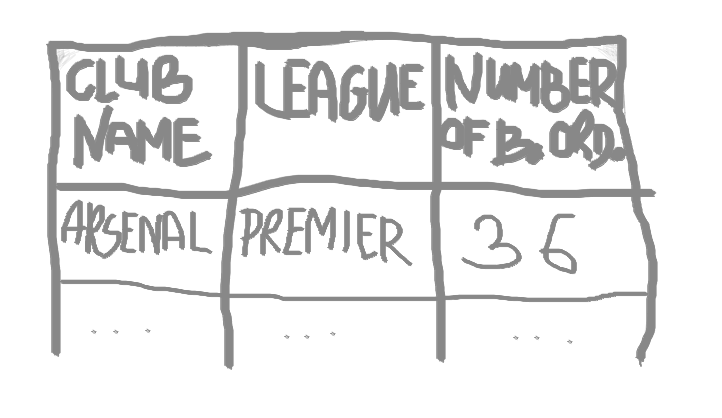 CLUB NAME LEAGUE NUMBER OF B. ORD.
ARSENAL PREMIER 36
... ... ...